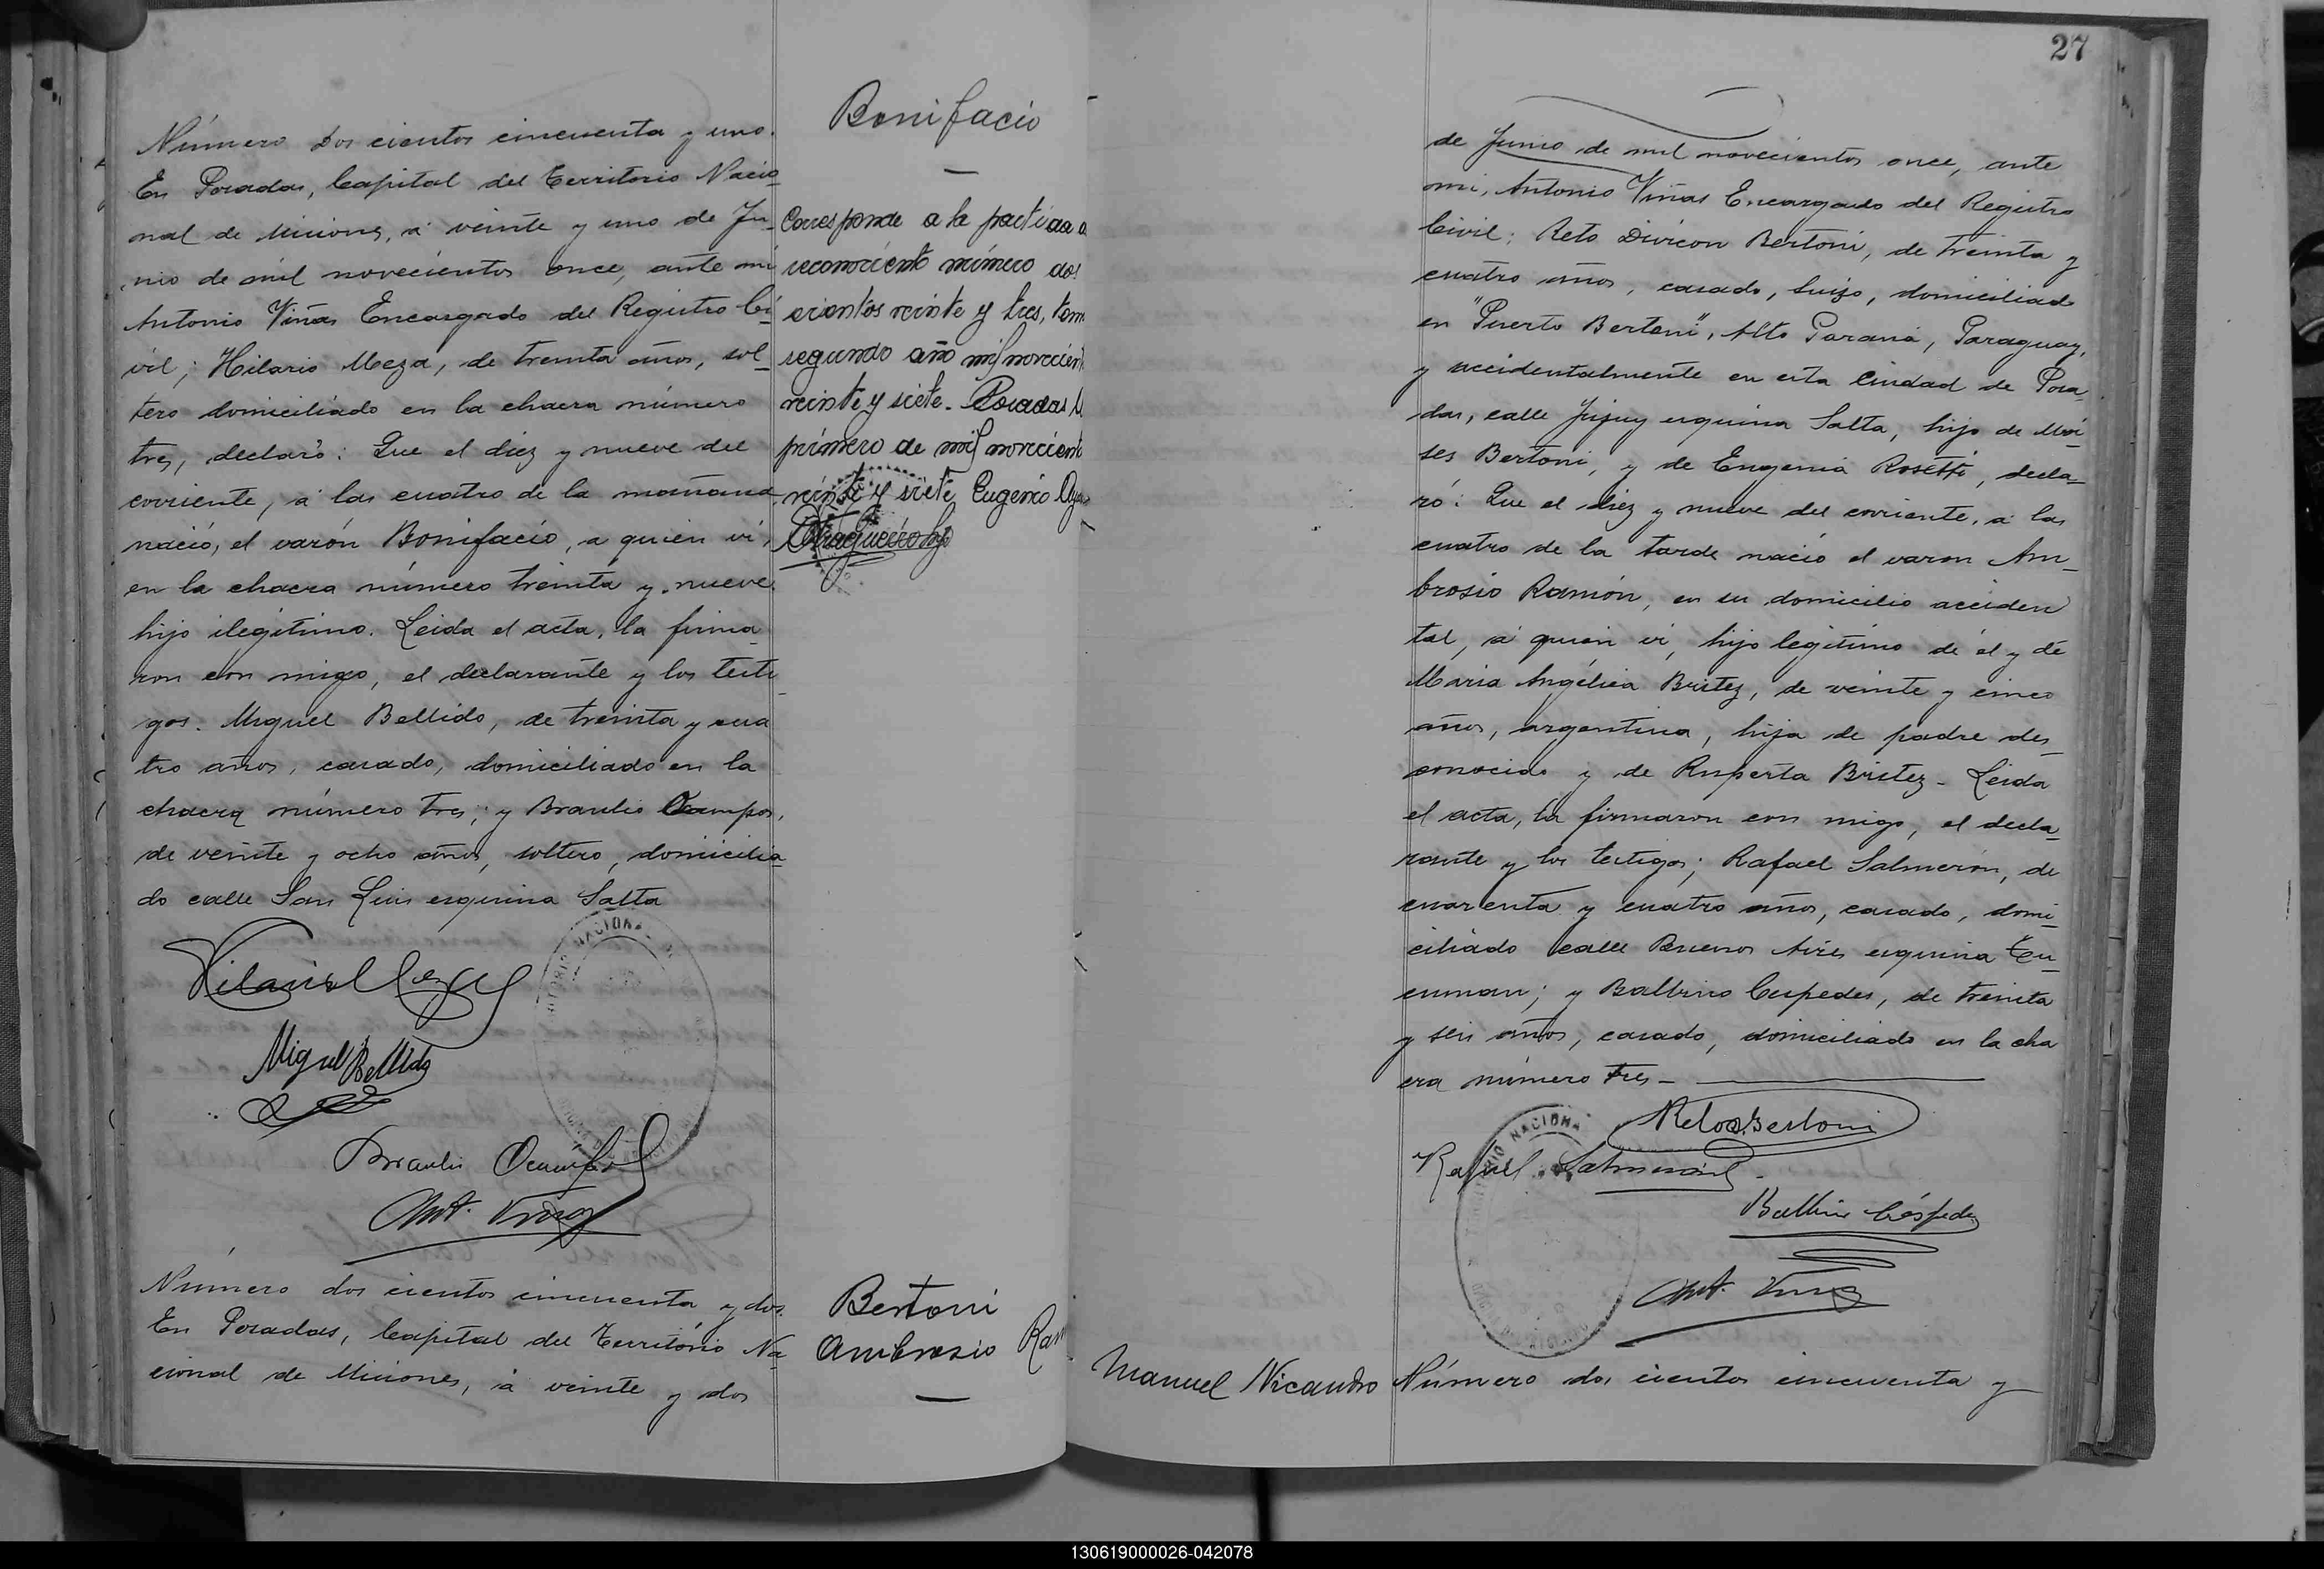 Número dos cientos cincuenta y uno.
En Posadas, Capital del Territorio Nacio_
nal de Misiones, á veinte y uno de Ju_
nio de mil novecientos once, ante mi
Antonio Viñas Encargado del Registro Ci_
vil; Hilario Meza, de treinta años, sol_
tero domiciliado en la chacra número
tres, declaró: Que el diez y nueve del
corriente, á las cuatro de la mañana
nació, el varón Bonifacio, a quien ví,
en la chacra número treinta y nueve
hijo ilegítimo. Leida el acta, la firma_
ron con migo, el declarante y los testi_
gos. Miguel Bellido, de treinta y cua
tro años, casado, domiciliado en la
chacra número tres; y Braulio Ocampos,
de veinte y ocho años, soltero, domicilia_
do calle San Luis esquina Salta
Hilario Meza
Miguel Bellido
Braulio Ocampos
Ant. Viñas
Número dos cientos cincuenta y dos.
En Posadas, Capital del Territorio Na_
cional de Misiones, á veinte y dos
Bonifacio
Corresponde a la partida
reconocimiento número dos
cientos veinte y tres, tom
segundo año mil novecien
veinte y siete. Posadas
primero de mil novecient
veinte y siete Eugenio
Bertoni
Ambrosio Ram
27
de Junio de mil novecientos once, ante
mi, Antonio Viñas Encargado del Registro
Civil; Reto Divicon Bertoni, de treinta y
cuatro años, casado, suizo, domiciliado
en "Puerto Bertoni", Alto Paraná, Paraguay,
y accidentalmente en esta Ciudad de Posa_
das, calle Jujuy esquina Salta, hijo de Moi_
ses Bertoni, y de Eugenia Rosetti, decla_
ró: Que el diez y nueve del corriente, á las
cuatro de la tarde nació el varon Am_
brosio Ramón, en su domicilio acciden
tal, á quien ví, hijo legítimo de él y de
Maria Angélica Britez, de veinte y cinco
años, argentina, hija de padre des_
conocido y de Ruperta Britez_ Leida
el acta, la firmaron con migo, el decla_
rante y los testigos; Rafael Salmerón, de
cuarenta y cuatro años, casado, domi_
ciliado calle Buenos Aires esquina Tu_
cuman; y Balbino Cespedes, de treinta
y seis años, casado, domiciliado en la cha
cra número tres_
Reto D. Bertoni
Rafael Salmerón
Balbino Céspedes
Ant. Viñas
Manuel Nicandro
Número dos cientos cincuenta y
130619000026-042078